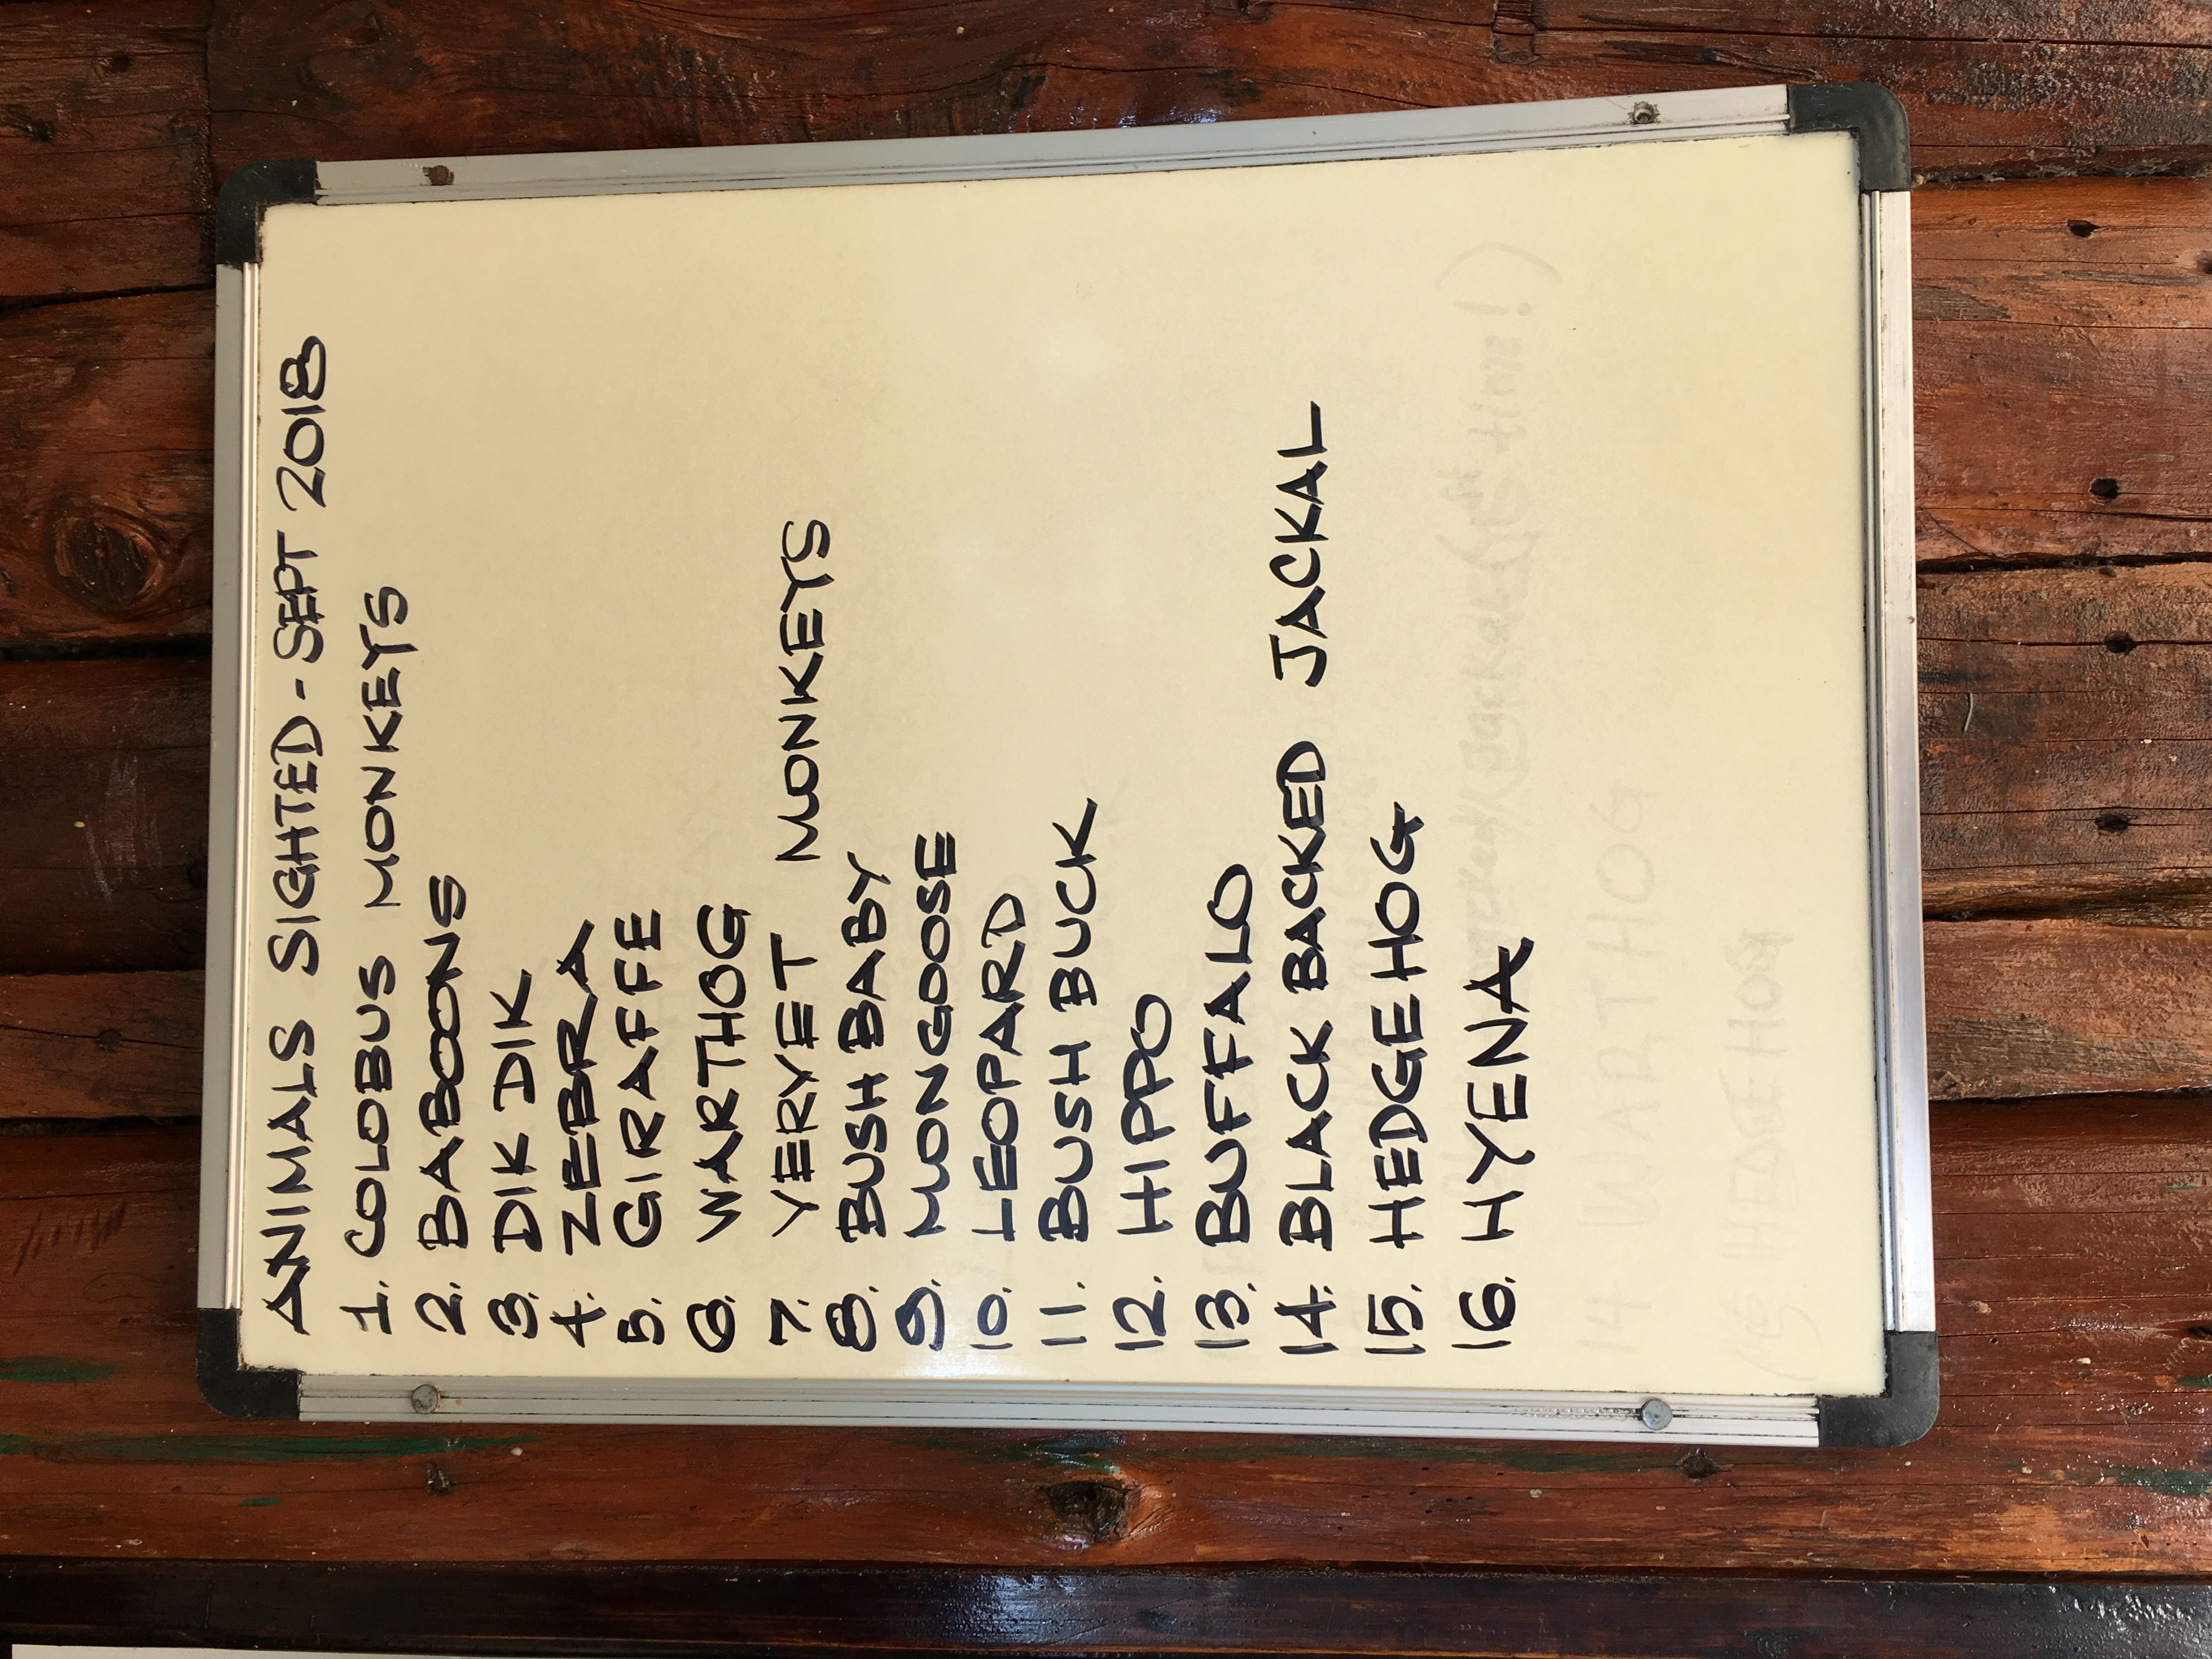 ANIMALS SIGHTED - SEPT 2018
1. COLOBUS MONKEYS
2. BABOONS
3. DIK DIK
4. ZEBRA
5. GIRAFFE
6. WARTHOG
7. VERVET MONKEYS
8. BUSH BABY
9. MONGOOSE
10. LEOPARD
11. BUSH BUCK
12. HIPPO
13. BUFFALO
14. BLACK BACKED JACKAL
15. HEDGE HOG
16. HYENA
14 WARTHOG
HEDGE HOG